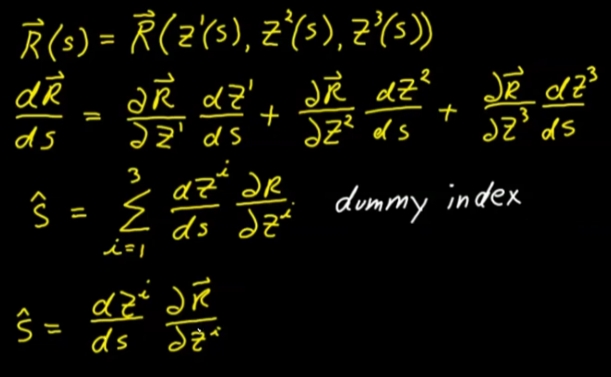 R⃗(s) = R⃗(z¹(s), z²(s), z³(s))
dR⃗/ds = ∂R⃗/∂z¹ dz¹/ds + ∂R⃗/∂z² dz²/ds + ∂R⃗/∂z³ dz³/ds
ŝ = ∑_{i=1}^{3} dzⁱ/ds ∂R/∂zⁱ dummy index
ŝ = dzⁱ/ds ∂R⃗/∂zⁱ